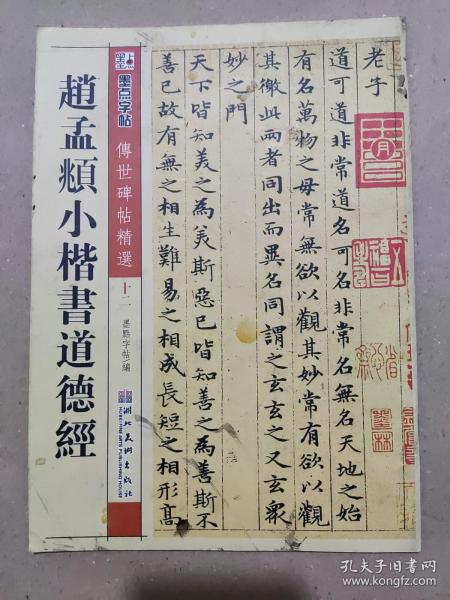 老子
道可道非常道名可名非常名無名天地之始
有名萬物之母常無欲以觀其妙常有欲以觀
其徼此兩者同出而異名同謂之玄玄之又玄衆
妙之門
天下皆知美之為美斯惡已皆知善之為善斯不
善已故有無之相生難易之相成長短之相形高
墨点
墨点字帖
傳世碑帖精選
十二
墨點字帖/編
湖北美術出版社
HUBEI FINE ARTS PUBLISHING HOUSE
趙孟頫小楷書道德經
墨林
孔夫子旧书网
www.kongfz.com